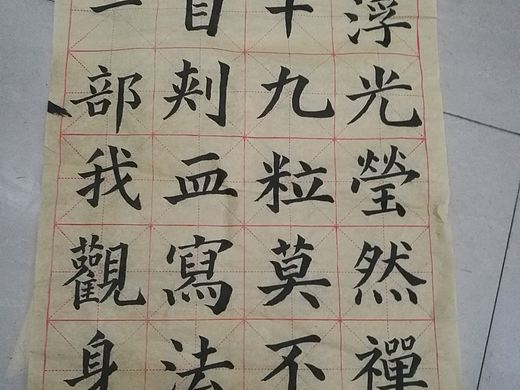 浮光瑩然禪
十九粒莫不
自刾血寫法
一部我觀身